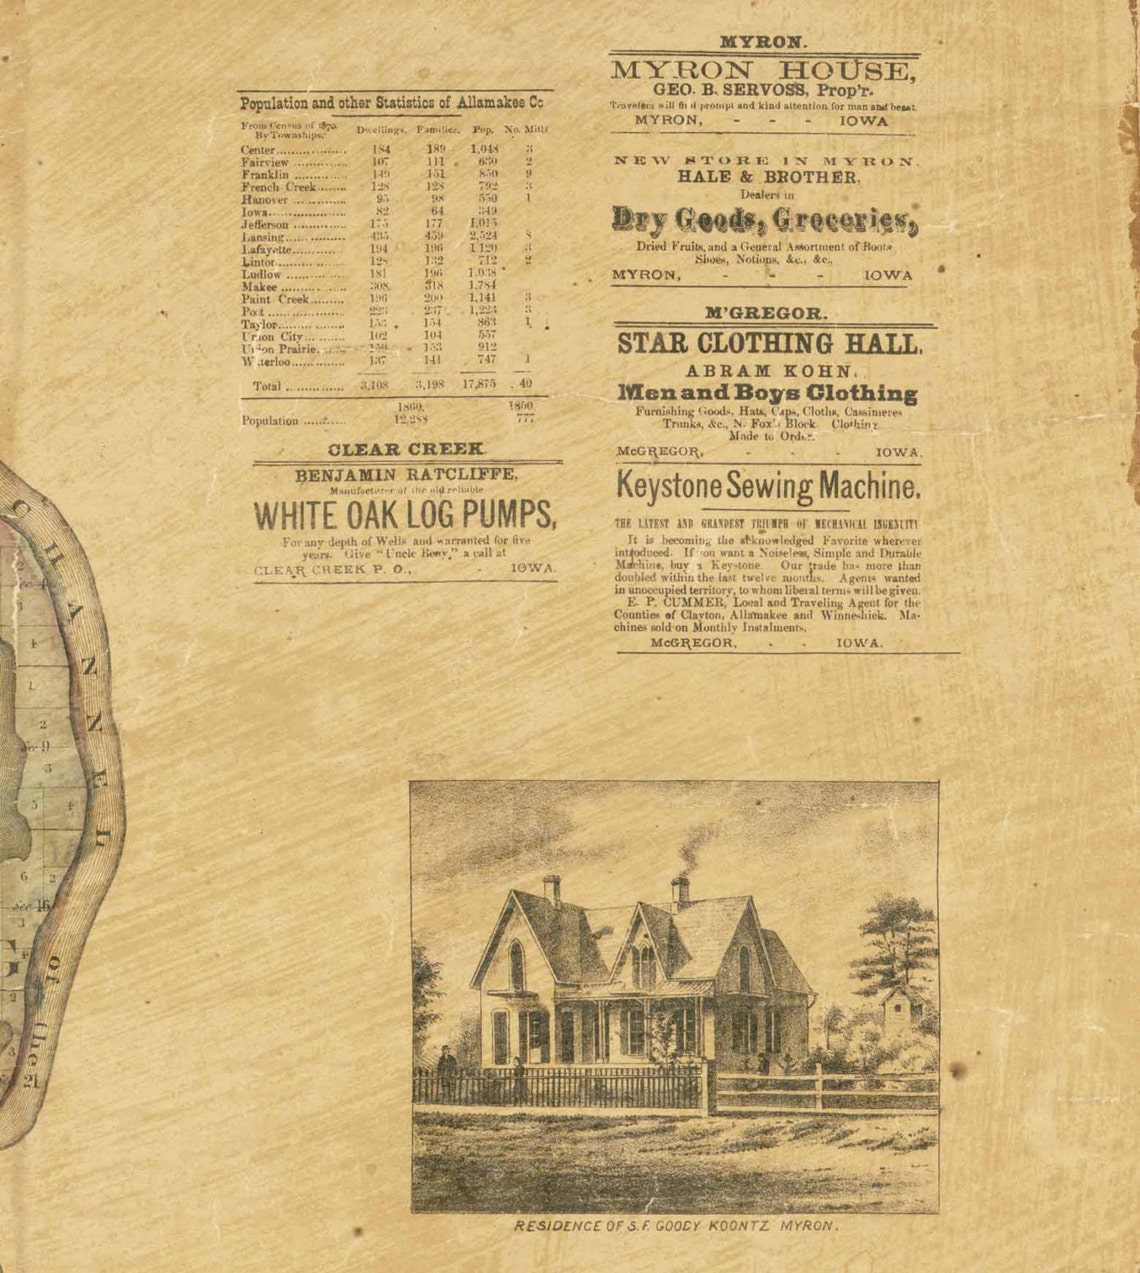 Population and other Statistics of Allamakee Co
From Census of 1870. By Townships. Dwellings. Families. Pop. No. Mills
Center 184 189 1,048 3
Fairview 107 111 630 2
Franklin 149 151 850 9
French Creek 128 128 792 3
Hanover 95 98 550 1
Iowa 82 64 349
Jefferson 175 177 1,015
Lansing 435 459 2,524 8
Lafayette 194 196 1,120 3
Linton 128 132 712 2
Ludlow 181 196 1,038
Makee 308 318 1,784
Paint Creek 196 200 1,141 3
Post 223 237 1,223 3
Taylor 153 154 863 1
Union City 102 104 557
Union Prairie 153 912
Waterloo 137 141 747 1
Total 3,108 3,198 17,875 40
1860. 1850.
Population 12,288 777
CLEAR CREEK
BENJAMIN RATCLIFFE,
Manufacturer of the old reliable
WHITE OAK LOG PUMPS,
For any depth of Wells and warranted for five
years. Give "Uncle Benny," a call at
CLEAR CREEK P. O., - IOWA.
MYRON.
MYRON HOUSE,
GEO. B. SERVOSS, Prop'r.
Travelers will find prompt and kind attention for man and beast.
MYRON, - - - IOWA
NEW STORE IN MYRON.
HALE & BROTHER,
Dealers in
Dry Goods, Groceries,
Dried Fruits, and a General Assortment of Boots
Shoes, Notions, &c., &c.,
MYRON, - - - IOWA
M'GREGOR.
STAR CLOTHING HALL,
ABRAM KOHN,
Men and Boys Clothing
Furnishing Goods, Hats, Caps, Cloths, Cassimeres
Trunks, &c., N. Fox's Block. Clothing
Made to Order.
McGREGOR, - - - IOWA.
Keystone Sewing Machine.
THE LATEST AND GRANDEST TRIUMPH OF MECHANICAL INGENUITY
It is becoming the acknowledged Favorite wherever
introduced. If you want a Noiseless, Simple and Durable
Machine, buy a Keystone. Our trade has more than
doubled within the last twelve months. Agents wanted
in unoccupied territory, to whom liberal terms will be given.
E. P. CUMMER, Local and Traveling Agent for the
Counties of Clayton, Allamakee and Winneshiek. Ma-
chines sold on Monthly Instalments.
McGREGOR, - - IOWA.
CHANNEL
of
the
4
1
2
9
3
5
4
6
2
16
3
2
3
21
RESIDENCE OF S.F. GOODY KOONTZ MYRON.